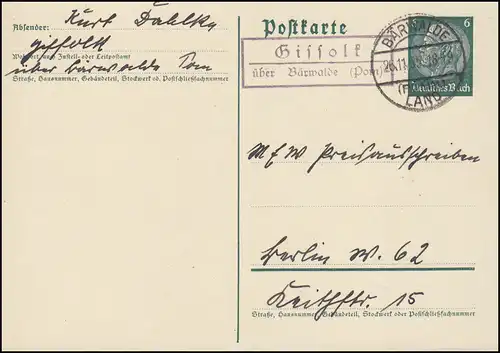 Absender: Kurt Dahlke
Gissolk
Wohnort und Zustell- oder Leitpostamt
über Bärwalde Pom
Straße, Hausnummer, Gebäudeteil, Stockwerk od. Postschließfachnummer
Postkarte
Gissolk
über Bärwalde (Pom)
BÄRWALDE
26.11.
LAND
6
Deutsches Reich
M f W Preisausschreiben
Berlin W. 62
Keithstr. 15
Straße, Hausnummer, Gebäudeteil, Stockwerk oder Postschließfachnummer